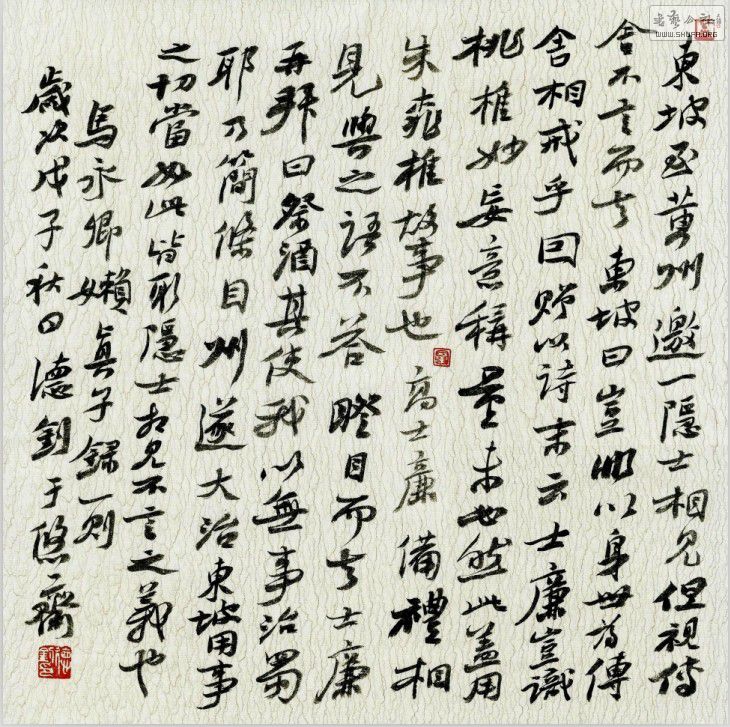 東坡至黃州邀一隱士相見但視傳
舍不言而去東坡曰豈非以身世為傳
舍相戒乎因贈以詩末云士廉豈識
桃椎妙妄意稱量未必然此蓋用
朱桃椎故事也高士廉備禮相
見與之語不答瞪目而去士廉
再拜曰祭酒其使我以無事治蜀
耶乃簡條目州遂大治東坡用事
之切當如此皆取隱士相見不言之義也
馬永卿嬾真子錄一則
歲次戊子秋日德釗于悠齋
WWW.SHUFA.ORG